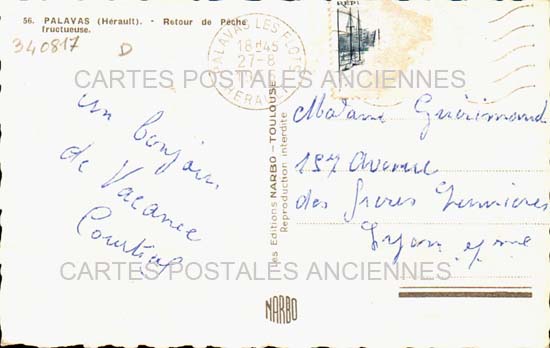 56. PALAVAS (Hérault). - Retour de Pêche
fructueuse.
340817
D
PALAVAS LES FLOTS
18H45
27-8
HERAULT
CARTES POSTALES ANCIENNES
un bonjour
de Vacance
Les Editions NARBO - TOULOUSE
Reproduction interdite
Madame
157 Avenue
des frères Lumières
Lyon
CARTES POSTALES ANCIENNES
NARBO